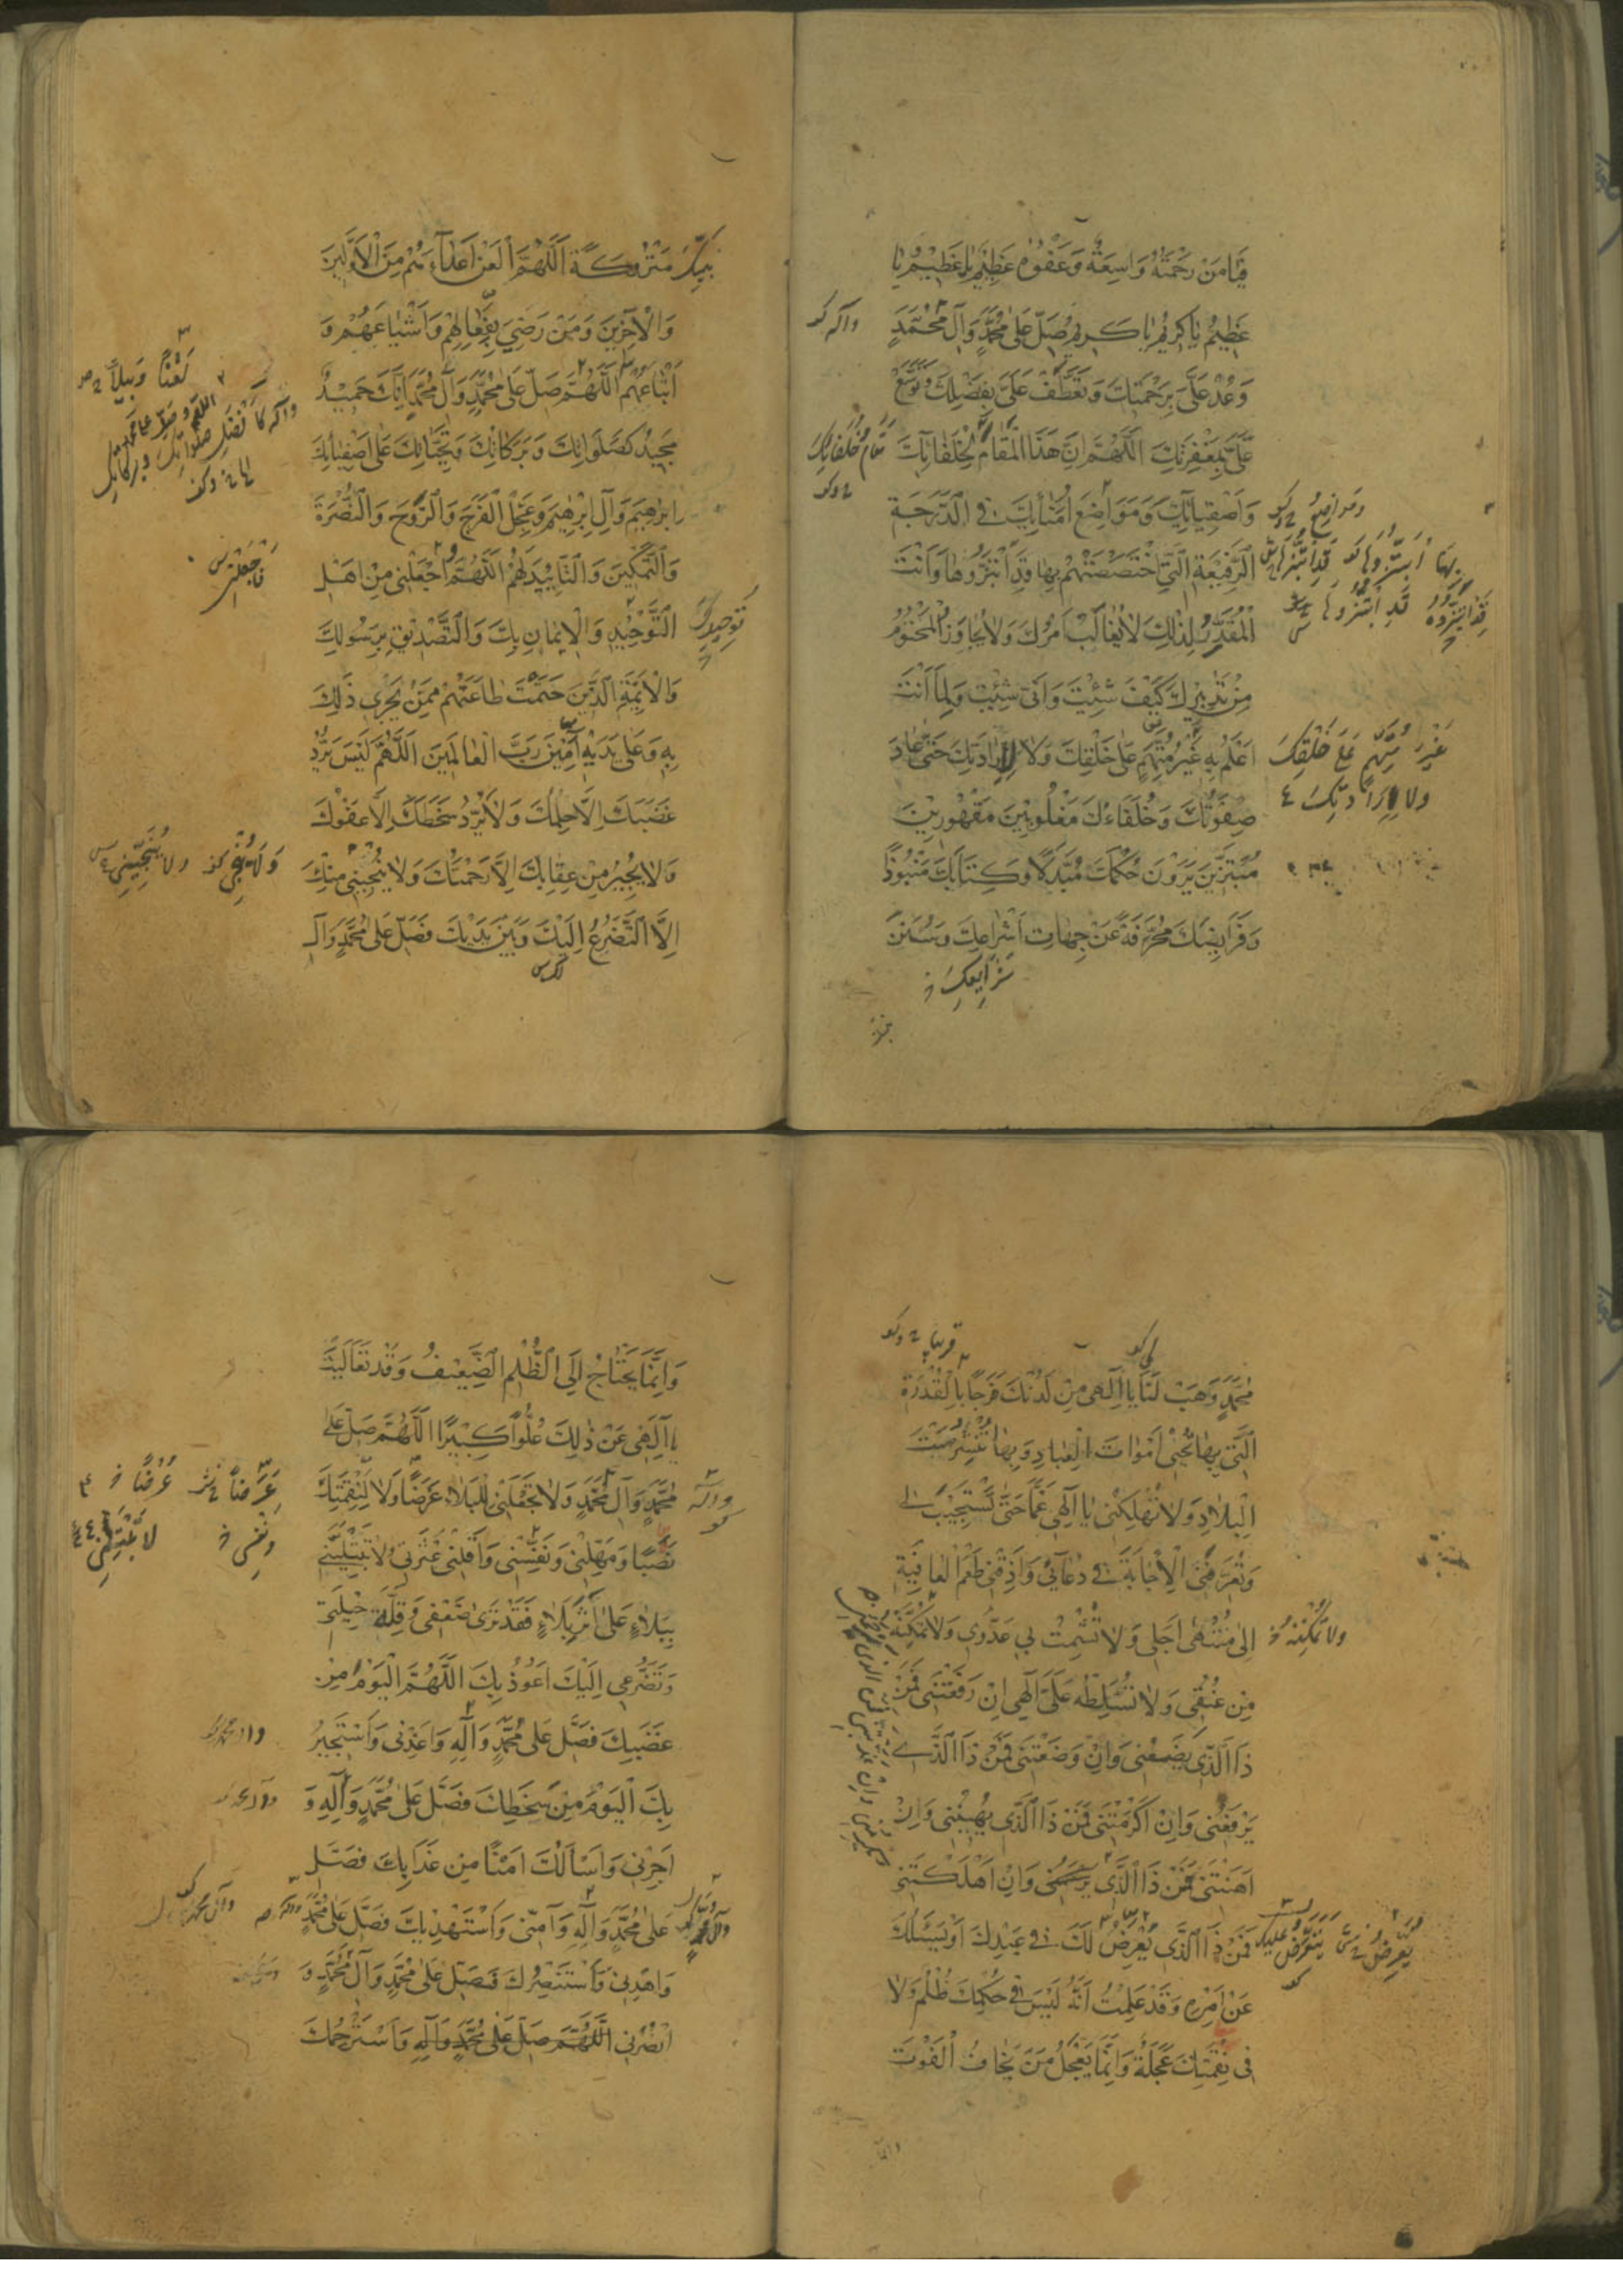 فَيَا مَنْ رَحْمَتُهُ وَاسِعَةٌ وَعَفْوُهُ عَظِيمٌ يَا عَظِيمُ يَا
عَظِيمُ يَا كَرِيمُ يَا كَرِيمُ صَلِّ عَلَى مُحَمَّدٍ وَآلِ مُحَمَّدٍ
وآله كو
وَعُدْ عَلَيَّ بِرَحْمَتِكَ وَتَعَطَّفْ عَلَيَّ بِفَضْلِكَ وَتَوَسَّعْ
عَلَيَّ بِمَغْفِرَتِكَ اَللّٰهُمَّ اِنَّ هٰذَا الْمَقَامَ لِخُلَفَائِكَ
مَقَامُ خُلَفَائِكَ
وَاَصْفِيَائِكَ وَمَوَاضِعَ اُمَنَائِكَ فِي الدَّرَجَةِ
ومواضعُ
الرَّفِيعَةِ الَّتِي اخْتَصَصْتَهُمْ بِهَا قَدِ ابْتَزُّوهَا وَاَنْتَ
الْمُقَدِّرُ لِذٰلِكَ لَا يُغَالَبُ اَمْرُكَ وَلَا يُجَاوَزُ الْمَحْتُومُ
مِنْ تَدْبِيرِكَ كَيْفَ شِئْتَ وَاَنّٰى شِئْتَ وَلِمَا اَنْتَ
اَعْلَمُ بِهِ غَيْرُ مُتَّهَمٍ عَلَى خَلْقِكَ وَلَا لِاِرَادَتِكَ حَتَّى عَادَ
غَيْرَ مُتَّهَمٍ عَلَى خَلْقِكَ
ولا لِاِرَادَتِكَ
صِفْوَتُكَ وَخُلَفَاءُكَ مَغْلُوبِينَ مَقْهُورِينَ
مُبْتَزِّينَ يَرَوْنَ حُكْمَكَ مُبَدَّلًا وَكِتَابَكَ مَنْبُوذًا
وَفَرَايِضَكَ مُحَرَّفَةً عَنْ جِهَاتِ اَشْرَاعِكَ وَسُنَنَ
شرايعك خ
نَبِيِّكَ مَتْرُوكَةً اَللّٰهُمَّ الْعَنْ اَعْدَآءَهُمْ مِنَ الْاَوَّلِينَ
وَالْاٰخِرِينَ وَمَنْ رَضِيَ بِفِعَالِهِمْ وَاَشْيَاعَهُمْ وَ
اَتْبَاعَهُمْ اَللّٰهُمَّ صَلِّ عَلَى مُحَمَّدٍ وَآلِ مُحَمَّدٍ اِنَّكَ حَمِيدٌ
لَعْنًا وَبِيلًا
مَجِيدٌ كَصَلَوَاتِكَ وَبَرَكَاتِكَ وَتَحِيَّاتِكَ عَلَى اَصْفِيَائِكَ
اِبْرٰهِيمَ وَآلِ اِبْرٰهِيمَ وَعَجِّلِ الْفَرَجَ وَالرَّوْحَ وَالنُّصْرَةَ
وَالتَّمْكِينَ وَالتَّأْيِيدَ لَهُمْ اَللّٰهُمَّ وَاجْعَلْنِي مِنْ اَهْلِ
فاجعلني س
التَّوْحِيدِ وَالْاِيمَانِ بِكَ وَالتَّصْدِيقِ بِرَسُولِكَ
تَوْحِيدِكَ
وَالْاَئِمَّةِ الَّذِينَ حَتَمْتَ طَاعَتَهُمْ مِمَّنْ يَجْرِي ذٰلِكَ
بِهِ وَعَلَى يَدَيْهِ آمِينَ رَبَّ الْعَالَمِينَ اَللّٰهُمَّ لَيْسَ يَرُدُّ
غَضَبَكَ اِلَّا حِلْمُكَ وَلَا يَرُدُّ سَخَطَكَ اِلَّا عَفْوُكَ
وَلَا يُجِيرُ مِنْ عِقَابِكَ اِلَّا رَحْمَتُكَ وَلَا يُنْجِينِي مِنْكَ
ولا يُنَجِّينِي
اِلَّا التَّضَرُّعُ اِلَيْكَ وَبَيْنَ يَدَيْكَ فَصَلِّ عَلَى مُحَمَّدٍ وَآلِ
مُحَمَّدٍ وَهَبْ لَنَا يَا اِلٰهِي مِنْ لَدُنْكَ فَرَجًا بِالْقُدْرَةِ
الَّتِي بِهَا تُحْيِي اَمْوَاتَ الْعِبَادِ وَبِهَا تَنْشُرُ مَيْتَ
الْبِلَادِ وَلَا تُهْلِكْنِي يَا اِلٰهِي غَمًّا حَتَّى تَسْتَجِيبَ لِي
وَتُعَرِّفَنِي الْاِجَابَةَ فِي دُعَائِي وَاَذِقْنِي طَعْمَ الْعَافِيَةِ
اِلَى مُنْتَهَى اَجَلِي وَلَا تُشْمِتْ بِي عَدُوِّي وَلَا تُمَكِّنْهُ
ولا تُمْكِنْهُ خ
مِنْ عُنُقِي وَلَا تُسَلِّطْهُ عَلَيَّ اِلٰهِي اِنْ رَفَعْتَنِي فَمَنْ
ذَا الَّذِي يَضَعُنِي وَاِنْ وَضَعْتَنِي فَمَنْ ذَا الَّذِي
يَرْفَعُنِي وَاِنْ اَكْرَمْتَنِي فَمَنْ ذَا الَّذِي يُهِينُنِي وَاِنْ
اَهَنْتَنِي فَمَنْ ذَا الَّذِي يَرْحَمُنِي وَاِنْ اَهْلَكْتَنِي
فَمَنْ ذَا الَّذِي يَعْرِضُ لَكَ فِي عَبْدِكَ اَوْ يَسْئَلُكَ
عَنْ اَمْرِهِ وَقَدْ عَلِمْتُ اَنَّهُ لَيْسَ فِي حُكْمِكَ ظُلْمٌ وَلَا
فِي نِقْمَتِكَ عَجَلَةٌ وَاِنَّمَا يَعْجَلُ مَنْ يَخَافُ الْفَوْتَ
وانما
وَاِنَّمَا يَحْتَاجُ اِلَى الظُّلْمِ الضَّعِيفُ وَقَدْ تَعَالَيْتَ
يَا اِلٰهِي عَنْ ذٰلِكَ عُلُوًّا كَبِيرًا اَللّٰهُمَّ صَلِّ عَلَى
مُحَمَّدٍ وَآلِ مُحَمَّدٍ وَلَا تَجْعَلْنِي لِلْبَلَاءِ غَرَضًا وَلَا لِنِقْمَتِكَ
نَصَبًا وَمَهِّلْنِي وَنَفِّسْنِي وَاَقِلْنِي عَثْرَتِي وَلَا تَبْتَلِيَنِّي
بِبَلَاءٍ عَلَى اَثَرِ بَلَاءٍ فَقَدْ تَرَى ضَعْفِي وَقِلَّةَ حِيلَتِي
وَتَضَرُّعِي اِلَيْكَ اَعُوذُ بِكَ اَللّٰهُمَّ الْيَوْمَ مِنْ
غَضَبِكَ فَصَلِّ عَلَى مُحَمَّدٍ وَآلِهِ وَاَعِذْنِي وَاَسْتَجِيرُ
بِكَ الْيَوْمَ مِنْ سَخَطِكَ فَصَلِّ عَلَى مُحَمَّدٍ وَآلِهِ وَ
اَجِرْنِي وَاَسْاَلُكَ اَمْنًا مِنْ عَذَابِكَ فَصَلِّ
عَلَى مُحَمَّدٍ وَآلِهِ وَآمِنِّي وَاَسْتَهْدِيكَ فَصَلِّ عَلَى مُحَمَّدٍ
وَاهْدِنِي وَاَسْتَنْصِرُكَ فَصَلِّ عَلَى مُحَمَّدٍ وَآلِ مُحَمَّدٍ وَ
انْصُرْنِي اَللّٰهُمَّ صَلِّ عَلَى مُحَمَّدٍ وَآلِهِ وَاَسْتَرْحِمُكَ